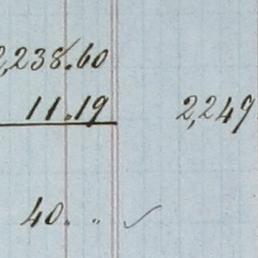 2,238.60
11.19 2,249
40. „ ✓